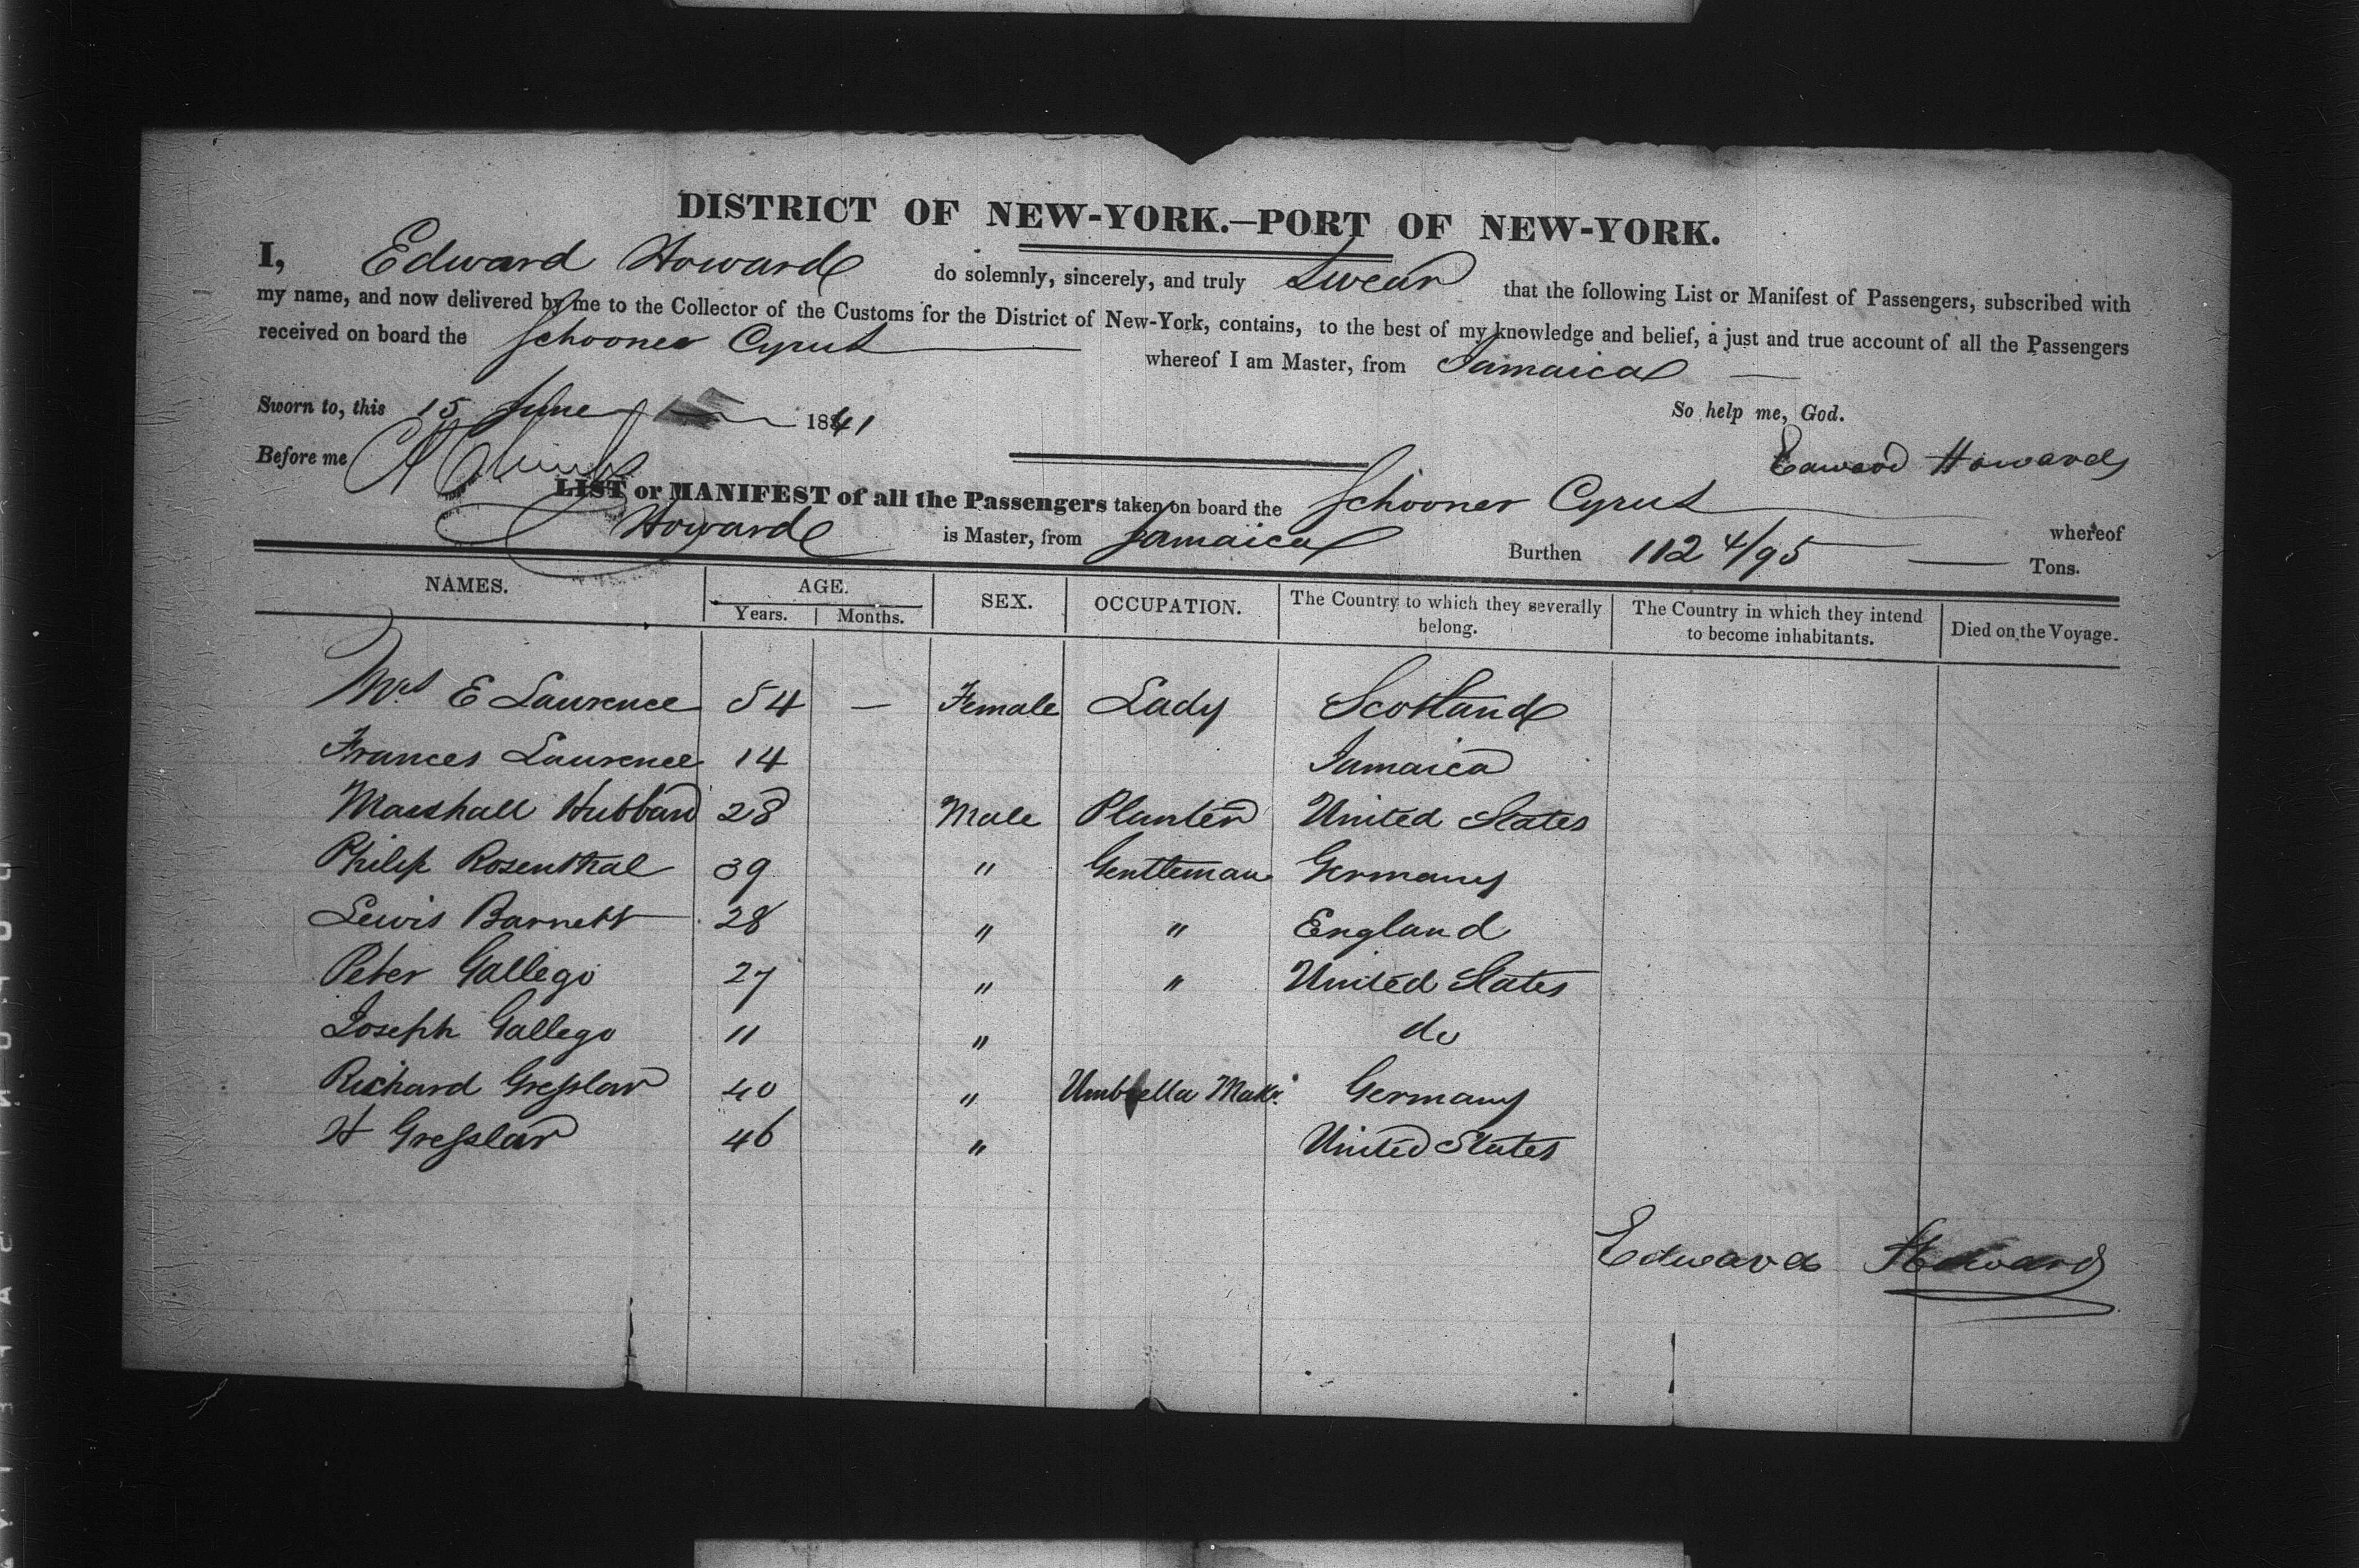 DISTRICT OF NEW-YORK.—PORT OF NEW-YORK.
I, Edward Howard do solemnly, sincerely, and truly Swear that the following List or Manifest of Passengers, subscribed with
my name, and now delivered by me to the Collector of the Customs for the District of New-York, contains, to the best of my knowledge and belief, a just and true account of all the Passengers
received on board the Schooner Cyrus whereof I am Master, from Jamaica
Sworn to, this 15 June 1841 So help me, God.
Before me Edward Howard
LIST or MANIFEST of all the Passengers taken on board the Schooner Cyrus whereof
Howard is Master, from Jamaica Burthen 112 4/95 Tons.
NAMES. AGE. SEX. OCCUPATION. The Country to which they severally belong. The Country in which they intend to become inhabitants. Died on the Voyage.
Years. Months.
Mrs E Laurence 54 — Female Lady Scotland
Frances Laurence 14 Jamaica
Marshall Hubbard 28 Male Planter United States
Philip Rosenthal 39 " Gentleman Germany
Lewis Barnett 28 " " England
Peter Gallego 27 " " United States
Joseph Gallego 11 " do
Richard Gresslar 40 " Umbrella Makr. Germany
H Gresslar 46 " United States
Edward Howard